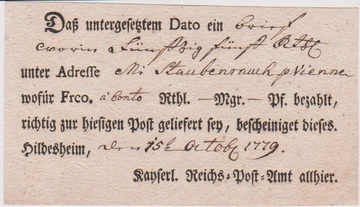 Daß untergesetztem Dato ein brieff
worin Fünffzig fünff Rthl
unter Adresse Mr p Vienne
wofür Frco. à Conto Rthl. — Mgr. — Pf. bezahlt,
richtig zur hiesigen Post geliefert sey, bescheiniget dieses.
Hildesheim, den 15t Octobr 1779.
Kayserl. Reichs-Post-Amt allhier.